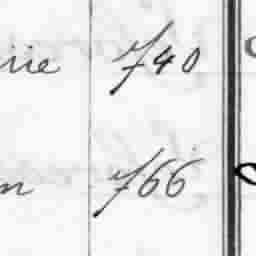 rie 740
n 766